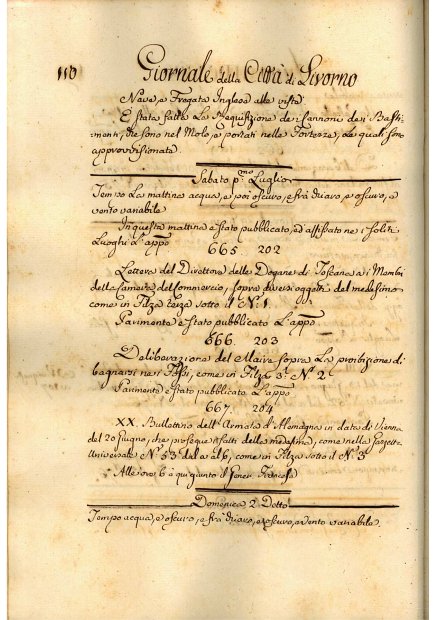 110 Giornale della Città di Livorno
Nave, e Fregata Inglese alla vista.
È stata fatta La Requisizione dei Cannoni dei Basti-
menti, che sono nel Molo, e portati nelle Fortezze, Le quali sono
approvvisionate.
Sabato p.mo Luglio
Tempo La mattina acqua, e poi oscuro, e frà chiaro, e oscuro, e
vento variabile
In questa mattina è stato pubblicato, ed affissato nei soliti
Luoghi L'appo
665. 202
Lettera del Direttore delle Dogane di Toscana a i Membri
della Camera del Commercio, sopra diversi oggetti del medesimo
come in Filza terza sotto il N.° 1
Parimente è stato pubblicato L'appo
666. 203
Deliberazione del Maire sopra La proibizione di
bagnarsi nei Fossi, come in Filza 3.a N.° 2
Parimente è stato pubblicato L'appo
667. 204
XX. Bullettino dell'Armata d'Alemagna in data di Vienna
del 20 Giugno, che prosegue i fatti della medesima, come nella Gazzetta
Universale N.° 53 dala al 6, come in Filza sotto il N.° 3
Alle ore 6 è qui giunto il Francese
Domenica 2. Detto
Tempo acqua, e oscuro, e frà chiaro, e oscuro, e vento variabile.